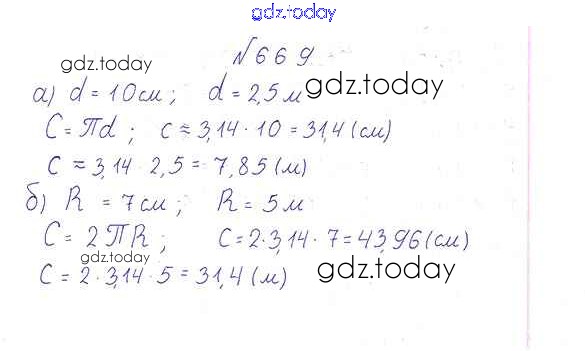 gdz.today
№669
gdz.today
а) d = 10см; d = 2,5м gdz.today
C = πd; c ≈ 3,14 · 10 = 31,4 (см)
C ≈ 3,14 · 2,5 = 7,85 (м)
б) R = 7см; R = 5м
C = 2πR; C = 2·3,14 · 7 = 43,96 (см)
gdz.today
C = 2 · 3,14 · 5 = 31,4 (м) gdz.today